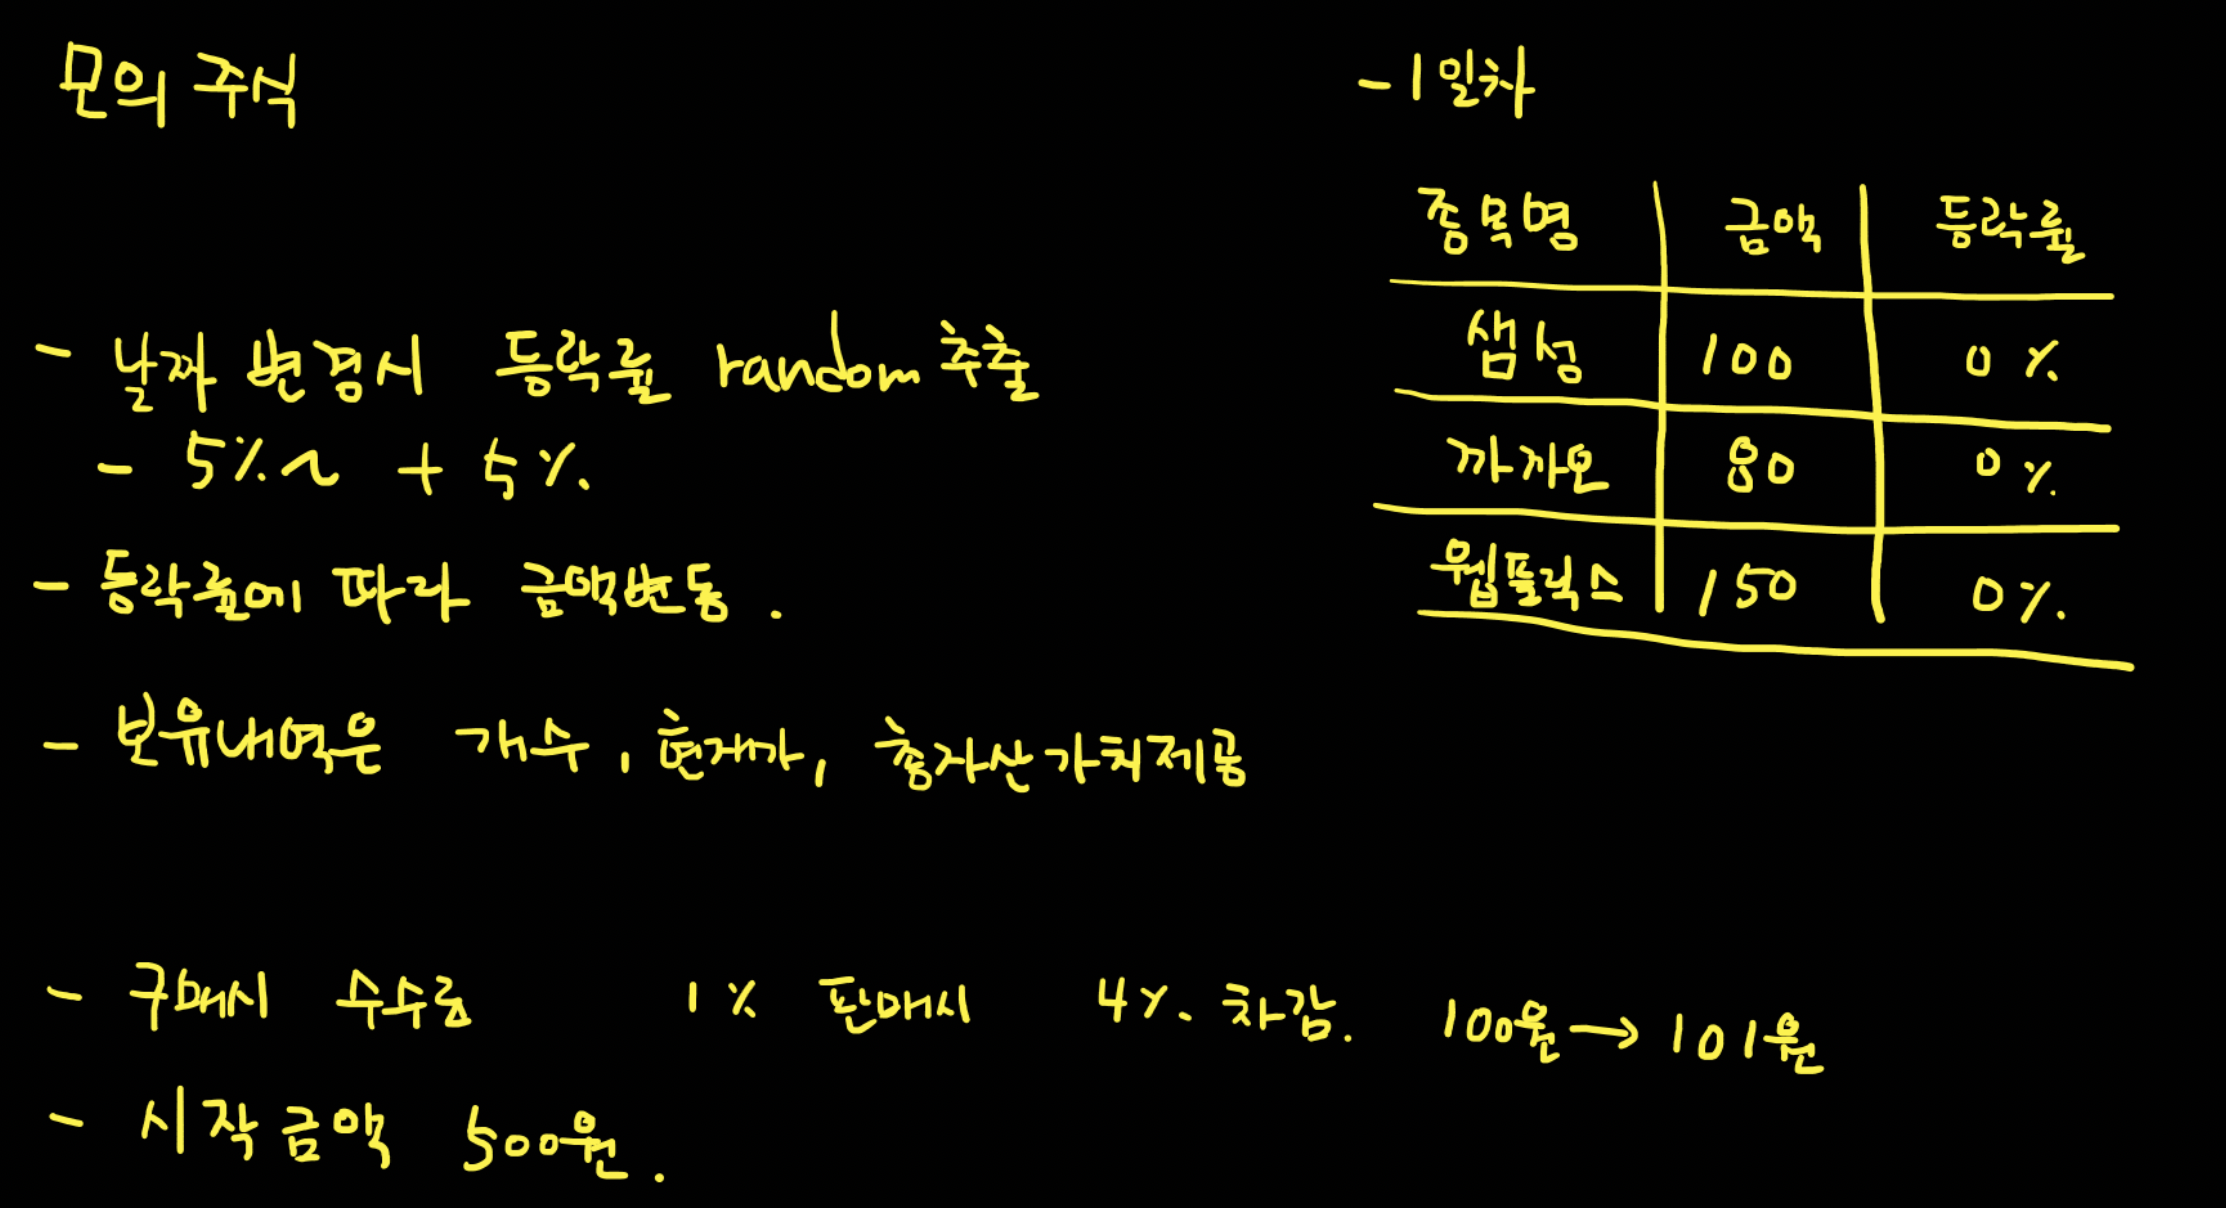 모의 주식
- 날짜 변경시 등락률 random 추출
- 5% ~ + 5%.
- 등락률에 따라 금액변동.
- 보유내역은 개수, 현재가, 총자산가치제공
- 구매시 수수료 1% 판매시 4%. 차감. 100원 → 101원
- 시작금액 500원.
- 1일차
종목명 금액 등락률
샘성 100 0%
까까오 80 0%.
웹플릭스 150 0%.